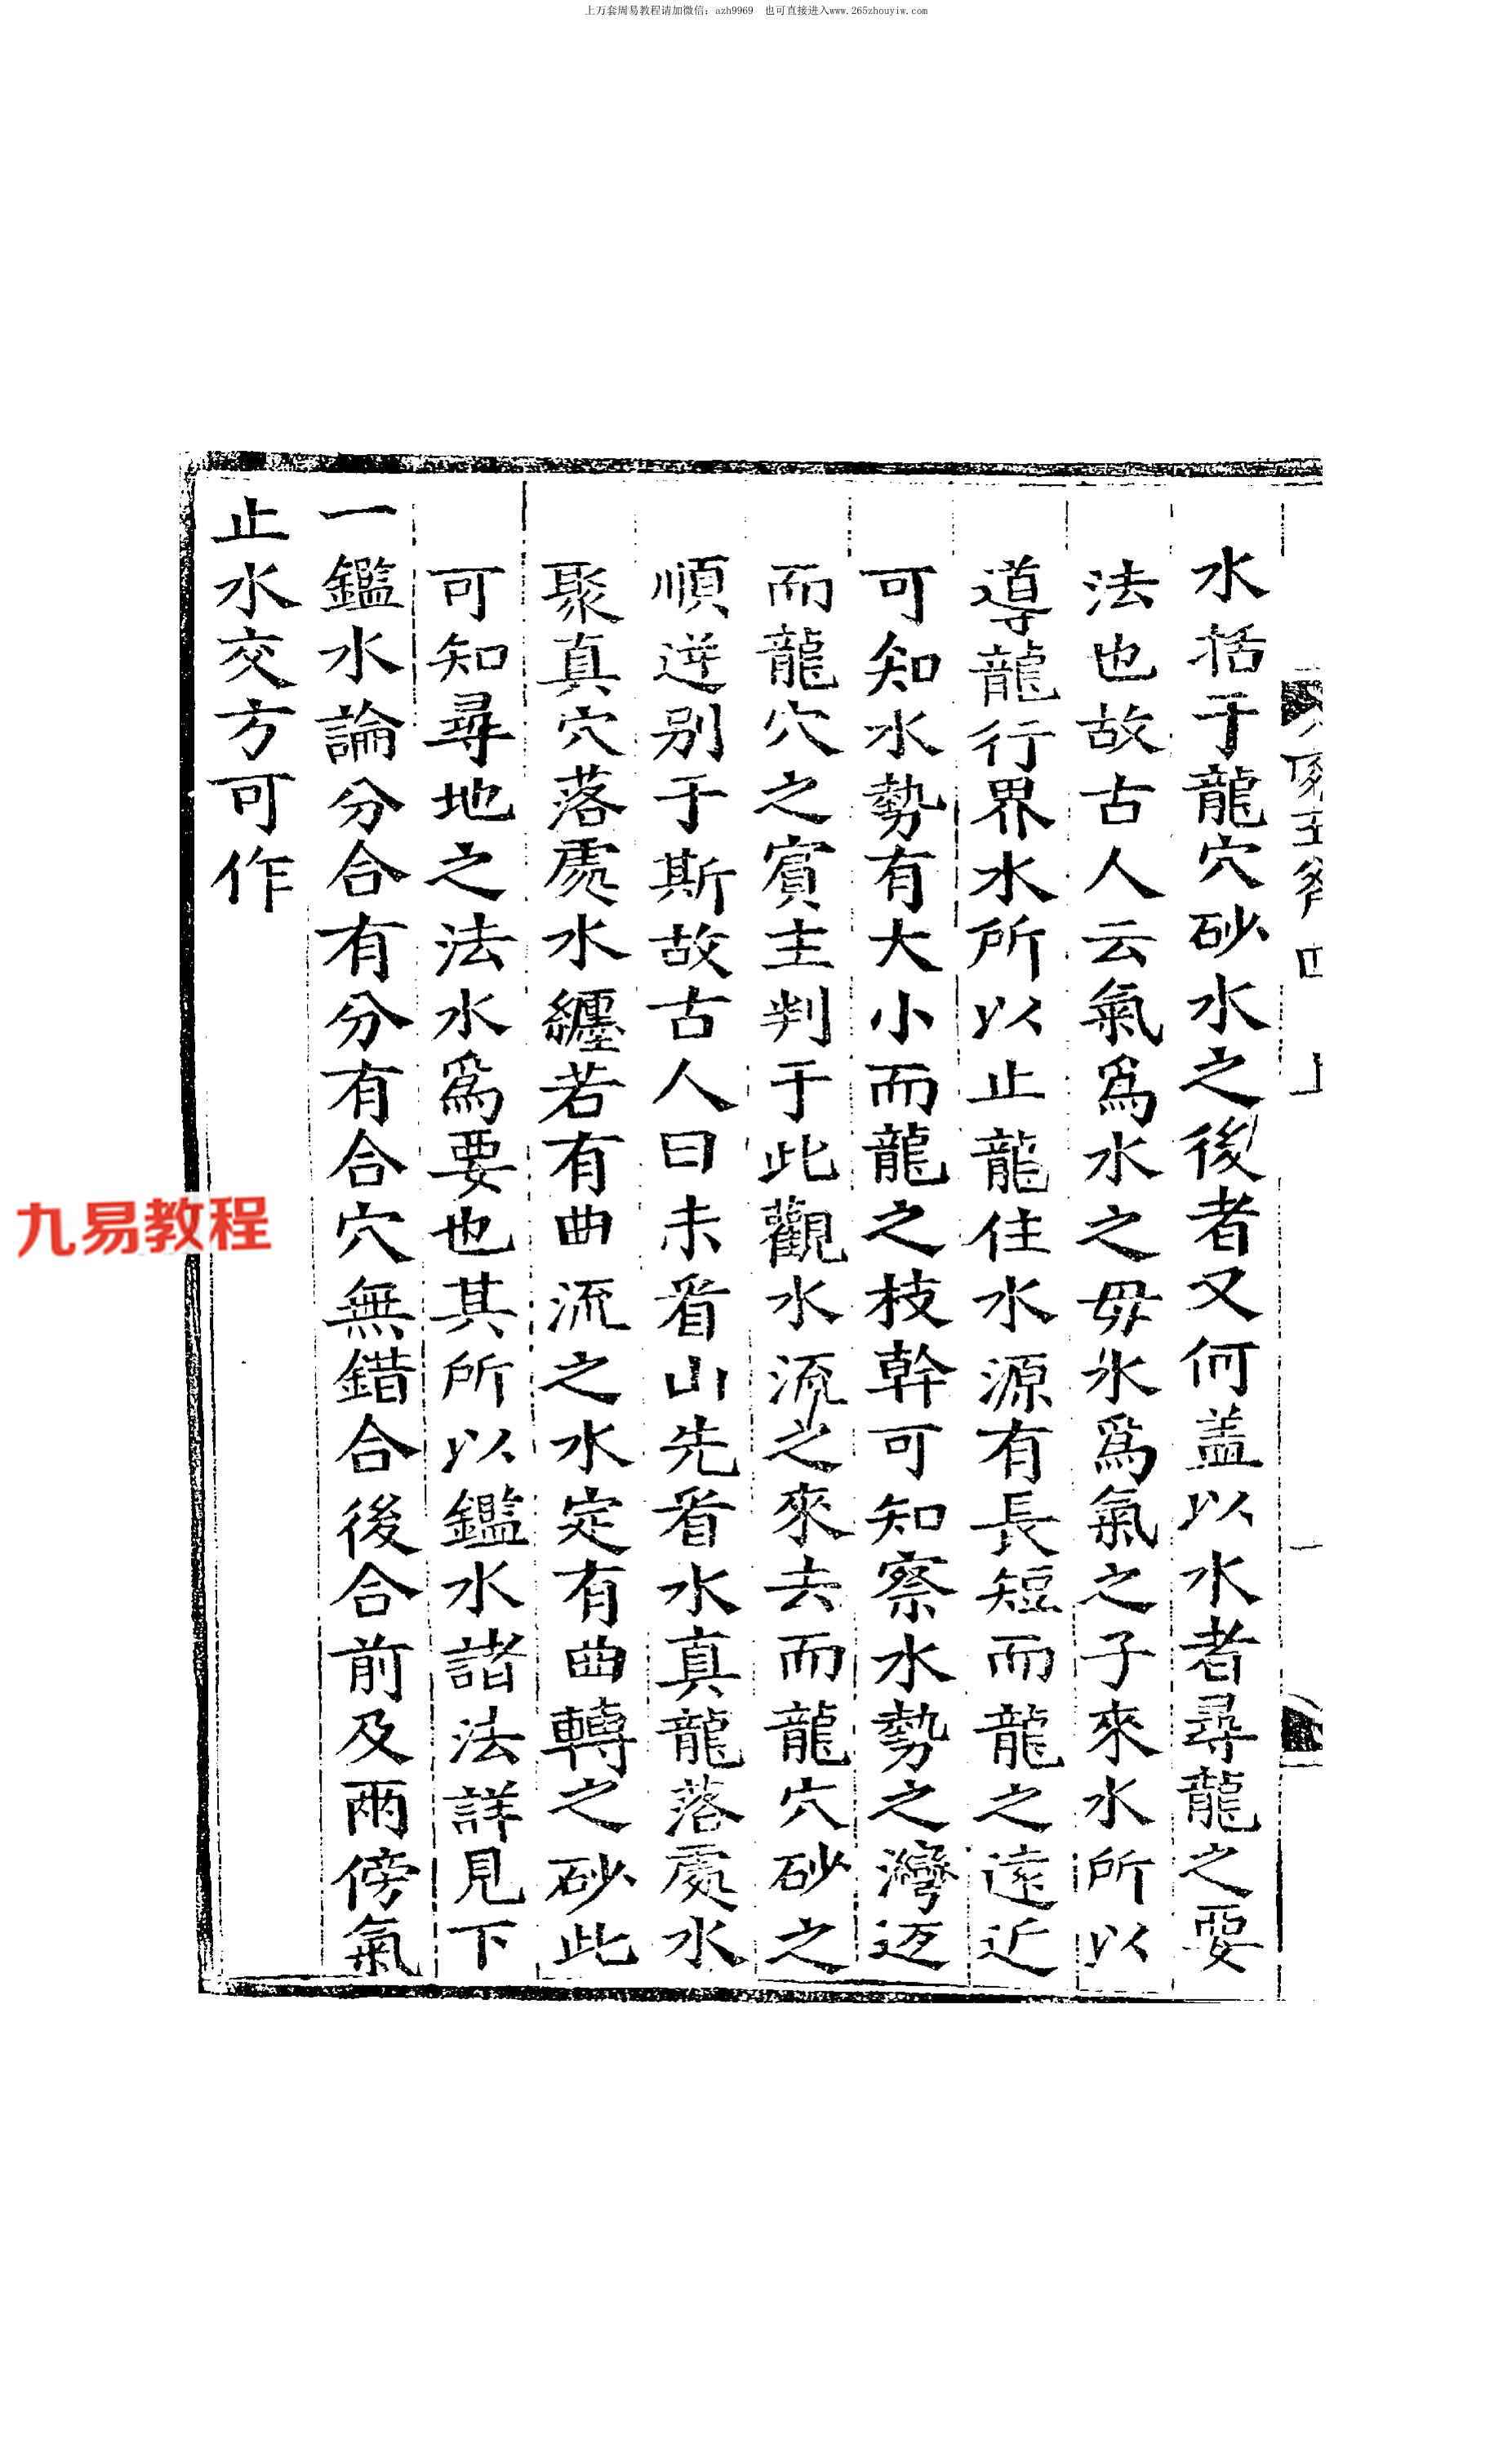 上万套周易教程请加微信：azh9969　也可直接进入www.265zhouyiw.com
水括于龍穴砂水之後者又何盖以水者尋龍之要
法也故古人云氣爲水之毋水爲氣之子來水所以
導龍行界水所以止龍住水源有長短而龍之遠近
可知水勢有大小而龍之枝幹可知察水勢之灣迈
而龍穴之賔主判于此觀水流之來去而龍穴砂之
順逆别于斯故古人曰未看山先看水真龍落處水
聚真穴落處水纏若有曲流之水定有曲轉之砂此
可知尋地之法水爲要也其所以鑑水諸法詳見下
一鑑水論分合有分有合穴無錯合後合前及兩傍氣
止水交方可作
九易教程